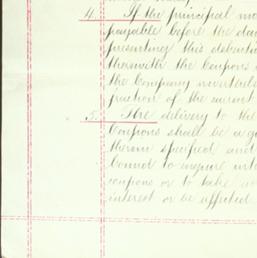 4. If the principal mo
payable before the da
presenting this debentu
therewith the Coupons
the Company
fraction of the current
5. The delivery to the
Coupons shall be a g
therein specified and
bound to inquire int
coupons or to take no
interest or be affected